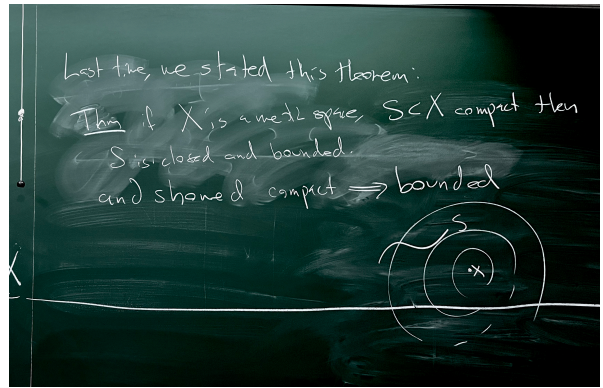 Last time, we stated this theorem:
Thm if X is a metric space, S⊂X compact then
S is closed and bounded.
and showed compact ⟹ bounded
S
x
X